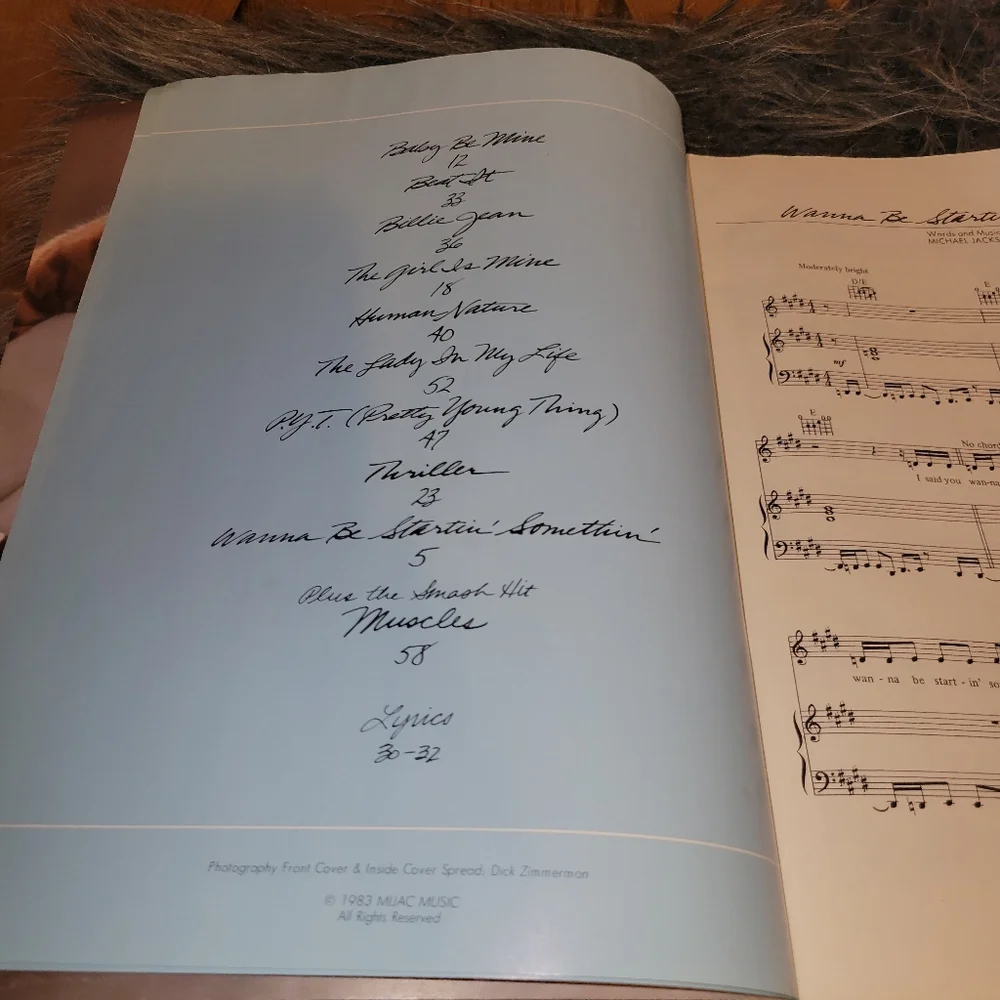 Baby Be Mine
12
Beat It
33
Billie Jean
36
The Girl Is Mine
18
Human Nature
40
The Lady In My Life
52
P.Y.T. (Pretty Young Thing)
47
Thriller
23
Wanna Be Startin' Somethin'
5
Plus the Smash Hit
Muscles
58
Lyrics
30-32
Photography Front Cover & Inside Cover Spread: Dick Zimmerman
© 1983 MIJAC MUSIC
All Rights Reserved
Wanna Be Starti
Words and Music
MICHAEL JACKS
Moderately bright
D/E
E
mf
E
No chord
I said you wan-na
wan - na be start - in' so